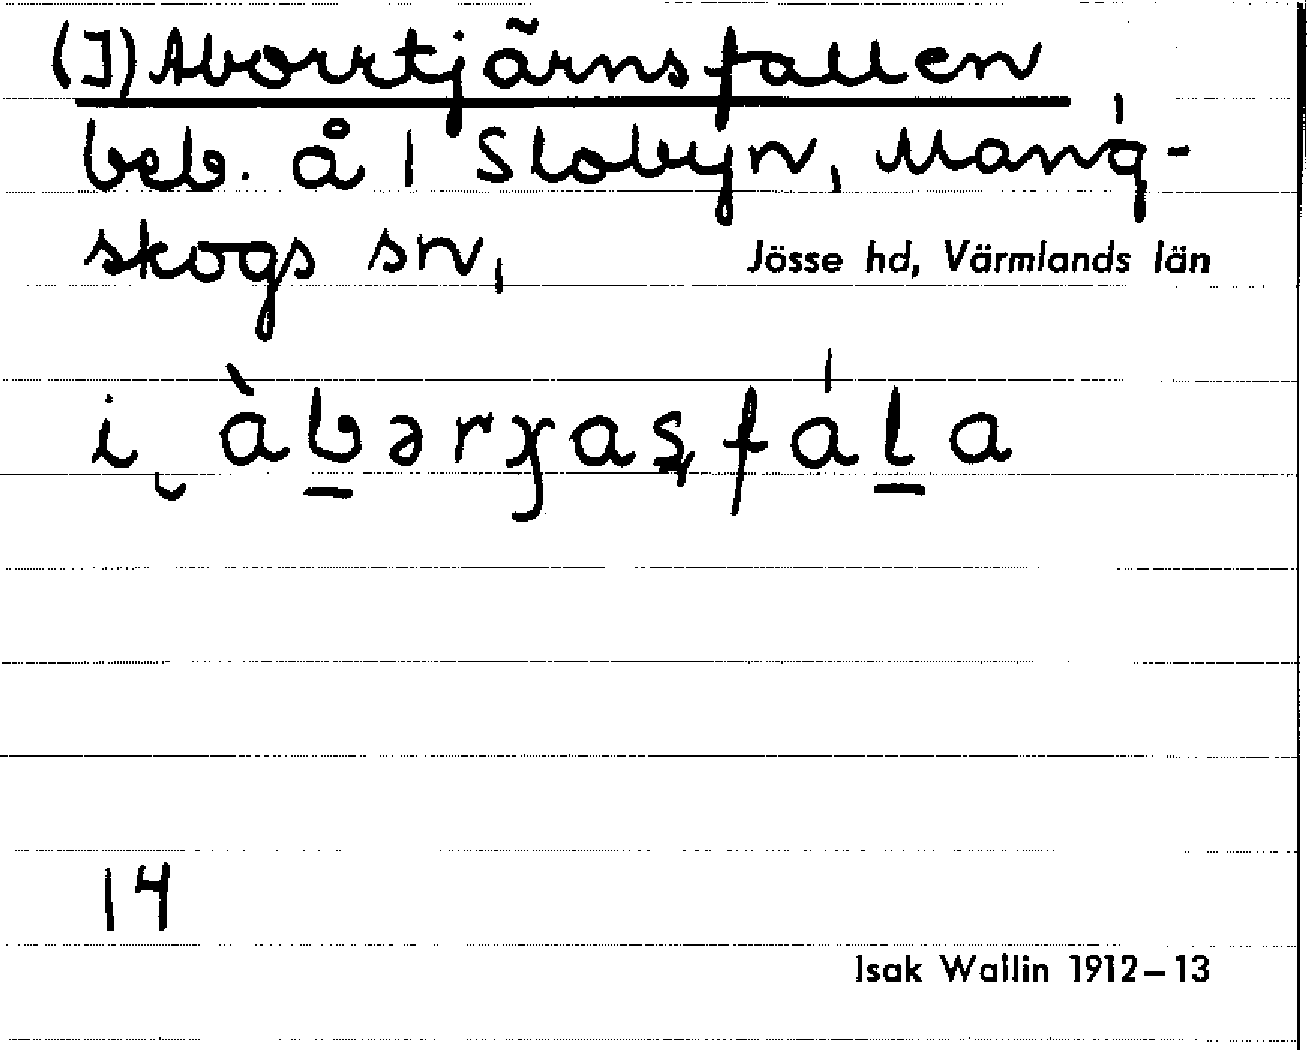 (I) Aborrtjärnsfallen
beb. å 1 Slobyn, Mang-
skogs sn,
Jösse hd, Värmlands län
i ͜ àb̲ərɣasf̣ál̲a
14
Isak Wallin 1912–13